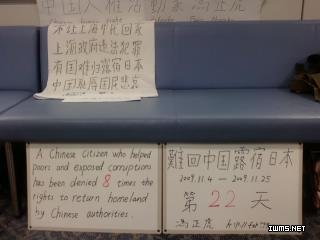 中国人權活動家馮正虎
不让上海市民回家
上海政府违法犯罪
有国难归露宿日本
中国耻辱国民悲哀
A Chinese citizen who helped
poors and exposed corruptions
has been denied 8 times the
rights to return homeland
by Chinese authorities.
難回中国露宿日本
2009.11.4 — 2009.11.25
第 22 天
冯正虎
IWMS.NET